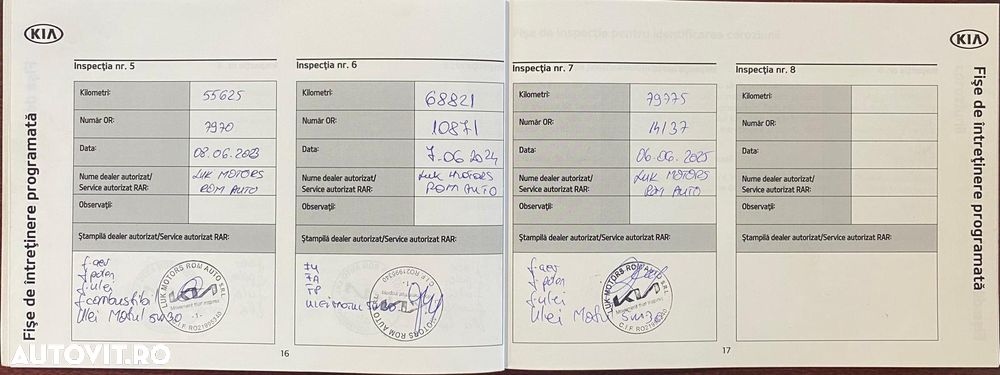 KIA
Fișe de întreținere programată
Inspecția nr. 5
Kilometri: 55625
Număr OR: 7970
Data: 08.06.2023
Nume dealer autorizat/ LUK MOTORS
Service autorizat RAR: ROM AUTO
Observații:
Ștampilă dealer autorizat/Service autorizat RAR:
f-aer
f-polen
f-ulei
f-combustibil
Ulei Motul 5W30
LUK MOTORS ROM AUTO S.R.L.
KIA
Movement that inspires
-1-
C.I.F. RO21995340
Inspecția nr. 6
Kilometri: 68821
Număr OR: 10871
Data: 7.06.2024
Nume dealer autorizat/ LUK MOTORS
Service autorizat RAR: ROM AUTO
Observații:
Ștampilă dealer autorizat/Service autorizat RAR:
FU
FA
FP
Ulei Motul 5W30
LUK MOTORS ROM AUTO S.R.L.
KIA
Movement that inspires
-1-
C.I.F. RO21995340
16
Inspecția nr. 7
Kilometri: 79775
Număr OR: 14137
Data: 06.06.2025
Nume dealer autorizat/ LUK MOTORS
Service autorizat RAR: ROM AUTO
Observații:
Ștampilă dealer autorizat/Service autorizat RAR:
f-aer
f-polen
f-ulei
Ulei Motul 5W30
LUK MOTORS ROM AUTO S.R.L.
KIA
Movement that inspires
C.I.F. RO21995340
Inspecția nr. 8
Kilometri:
Număr OR:
Data:
Nume dealer autorizat/
Service autorizat RAR:
Observații:
Ștampilă dealer autorizat/Service autorizat RAR:
17
KIA
Fișe de întreținere programată
AUTOVIT.RO